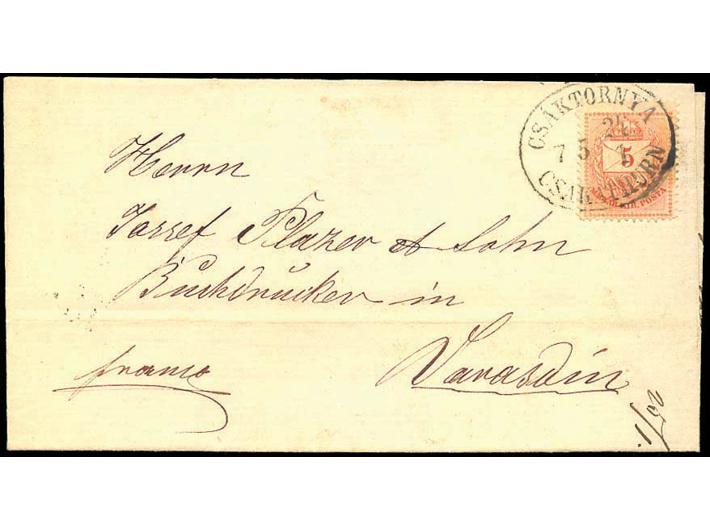 CSÁKTORNYA
24
7 5 1
CSAKATHURN
5
MAGY. KIR. POSTA
Herrn
Jossef Plazer et Sohn
Buchdrucker in
Varasdin
franco
25/1